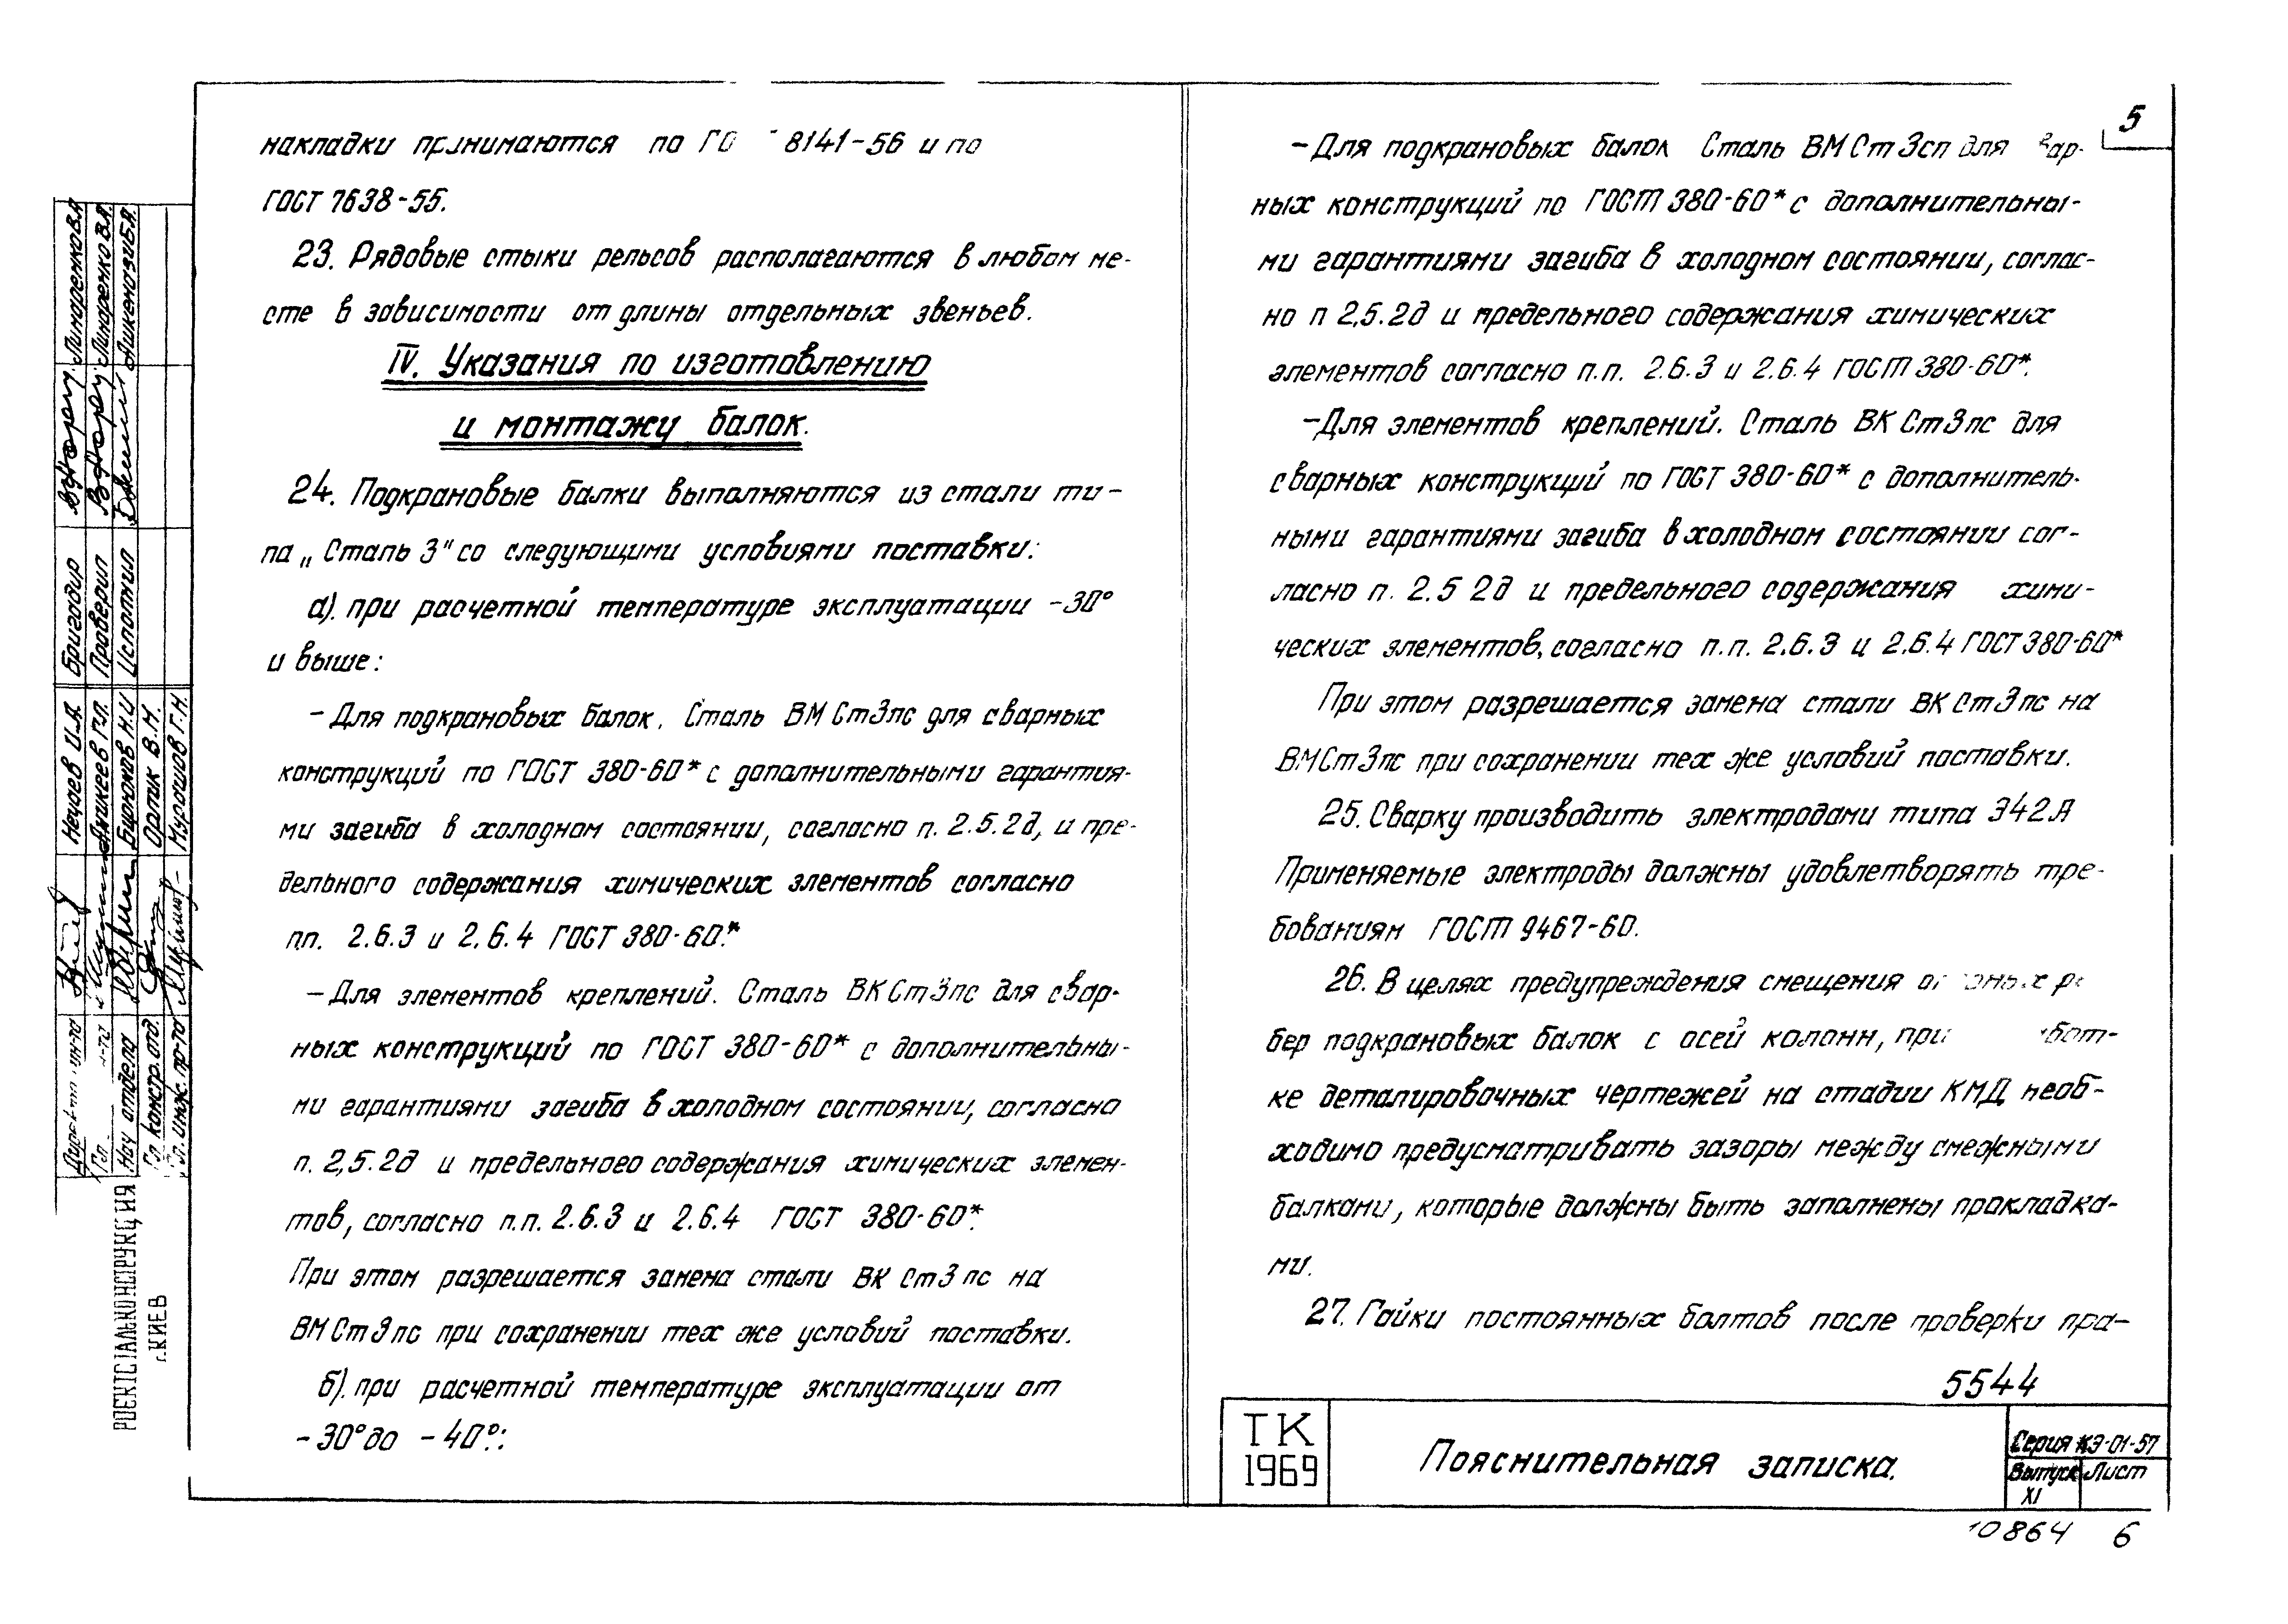 5
накладки принимаются по 8141-56 и по
ГОСТ 7638-55.
23. Рядовые стыки рельсов располагаются в любом ме-
сте в зависимости от длины отдельных звеньев.
IV. Указания по изготовлению
и монтажу балок.
24. Подкрановые балки выполняются из стали ти-
па „Сталь 3" со следующими условиями поставки:
а). при расчетной температуре эксплуатации -30°
и выше:
- Для подкрановых балок. Сталь ВМСт3пс для сварных
конструкций по ГОСТ 380-60* с дополнительными гарантия-
ми загиба в холодном состоянии, согласно п. 2.5.2д, и пре-
дельного содержания химических элементов согласно
п.п. 2.6.3 и 2.6.4 ГОСТ 380-60.*
- Для элементов креплений. Сталь ВКСт3пс для свар-
ных конструкций по ГОСТ 380-60* с дополнительны-
ми гарантиями загиба в холодном состоянии, согласно
п. 2,5.2д и предельного содержания химических элемен-
тов, согласно п.п. 2.6.3 и 2.6.4 ГОСТ 380-60*.
При этом разрешается замена стали ВКСт3пс на
ВМСт3пс при сохранении тех же условий поставки.
б). при расчетной температуре эксплуатации от
-30° до -40°:
- Для подкрановых балок Сталь ВМСт3сп для
ных конструкций по ГОСТ 380-60* с дополнительны-
ми гарантиями загиба в холодном состоянии, соглас-
но п 2,5.2д и предельного содержания химических
элементов согласно п.п. 2.6.3 и 2.6.4 ГОСТ 380-60*.
- Для элементов креплений. Сталь ВКСт3пс для
сварных конструкций по ГОСТ 380-60* с дополнитель-
ными гарантиями загиба в холодном состоянии сог-
ласно п. 2.5 2д и предельного содержания хими-
ческих элементов, согласно п.п. 2.6.3 и 2.6.4 ГОСТ 380-60*
При этом разрешается замена стали ВКСт3пс на
ВМСт3пс при сохранении тех же условий поставки.
25. Сварку производить электродами типа Э42А
Применяемые электроды должны удовлетворять тре-
бованиям ГОСТ 9467-60.
26. В целях предупреждения смещения
бер подкрановых балок с осей колонн, при
ке деталировочных чертежей на стадии КМД необ-
ходимо предусматривать зазоры между смежными
балками, которые должны быть заполнены прокладка-
ми.
27. Гайки постоянных болтов после проверки пра-
5544
ТК
1969
Пояснительная записка.
Серия КЭ-01-57
Выпуск Лист
XI
10864 6
Бригадир Линаренко В.А.
Проверил Линаренко В.А.
Исполнил
Нечаев И.А.
Аникеев Г.Л.
Нач отдела Бирюков Н.И
Гл. констр. отд. Орлик В.М.
Гл. инж. пр-та Мурашов Г.Н.
г. КИЕВ